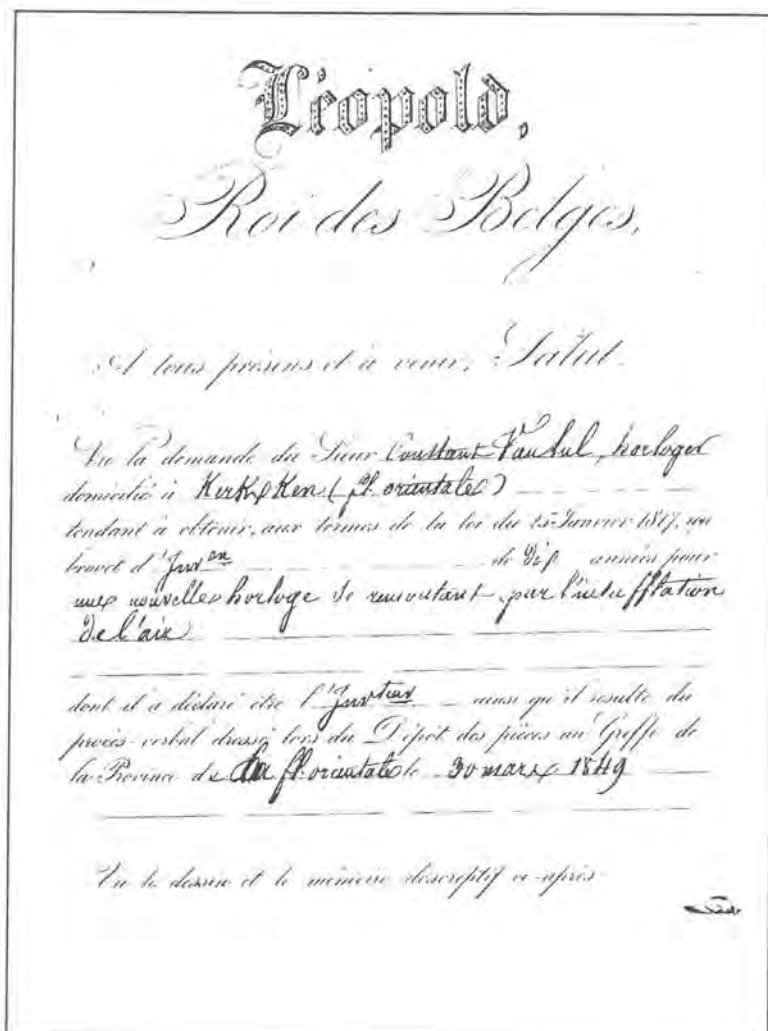 Léopold,
Roi des Belges,
A tous présens et à venir, Salut.
Vu la demande du Sieur Constant horloger
domicilié à Kerkxken (fl. orientale)
tendant à obtenir, aux termes de la loi du 25 Janvier 1817, un
brevet d'Inv.on de Dix années pour
une nouvelle horloge se remontant par l'insufflation
de l'air
dont il a déclaré être l'Inv.teur ainsi qu'il résulte du
procès-verbal dressé lors du Dépôt des pièces au Greffe de
la Province de la fl. orientale le 30 mars 1849
Vu le dessin et le mémoire descriptif ci-après